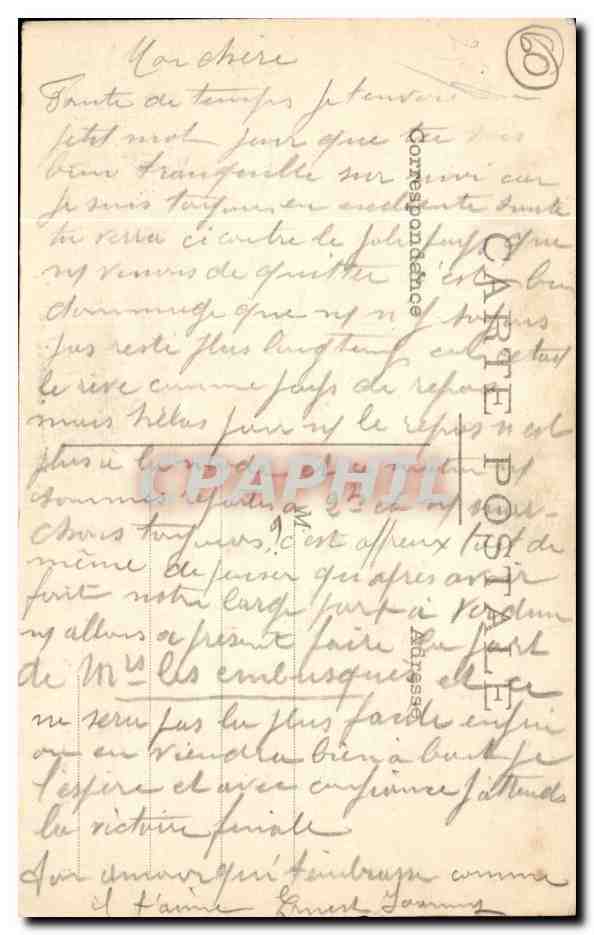 60
Ma chère
Faute de temps je t'envoie
petit mot pour que tu sois
bien tranquille sur moi car
je suis toujours en excellente santé
tu verra ci contre le joli pays que
ns venons de quitter c'est bien
dommage que ns n'y soyons
pas resté plus longtemps
le rêve comme pays de repos
mais hélas pour ns le repos n'est
plus à la mode ns
sommes à 2h et ns mar-
chons toujours, c'est affreux tout de
même de penser qu'après avoir
fait notre large part à Verdun
ns allons à présent faire la part
de Mrs les embusqués et ce
ne sera pas la plus facile enfin
on en viendra bien à bout je
l'espère et avec confiance j'attends
la victoire finale
Ton amour qui t'embrasse comme
il t'aime Ernest
CARTE POSTALE
Correspondance
Adresse
M
CPAPHIL